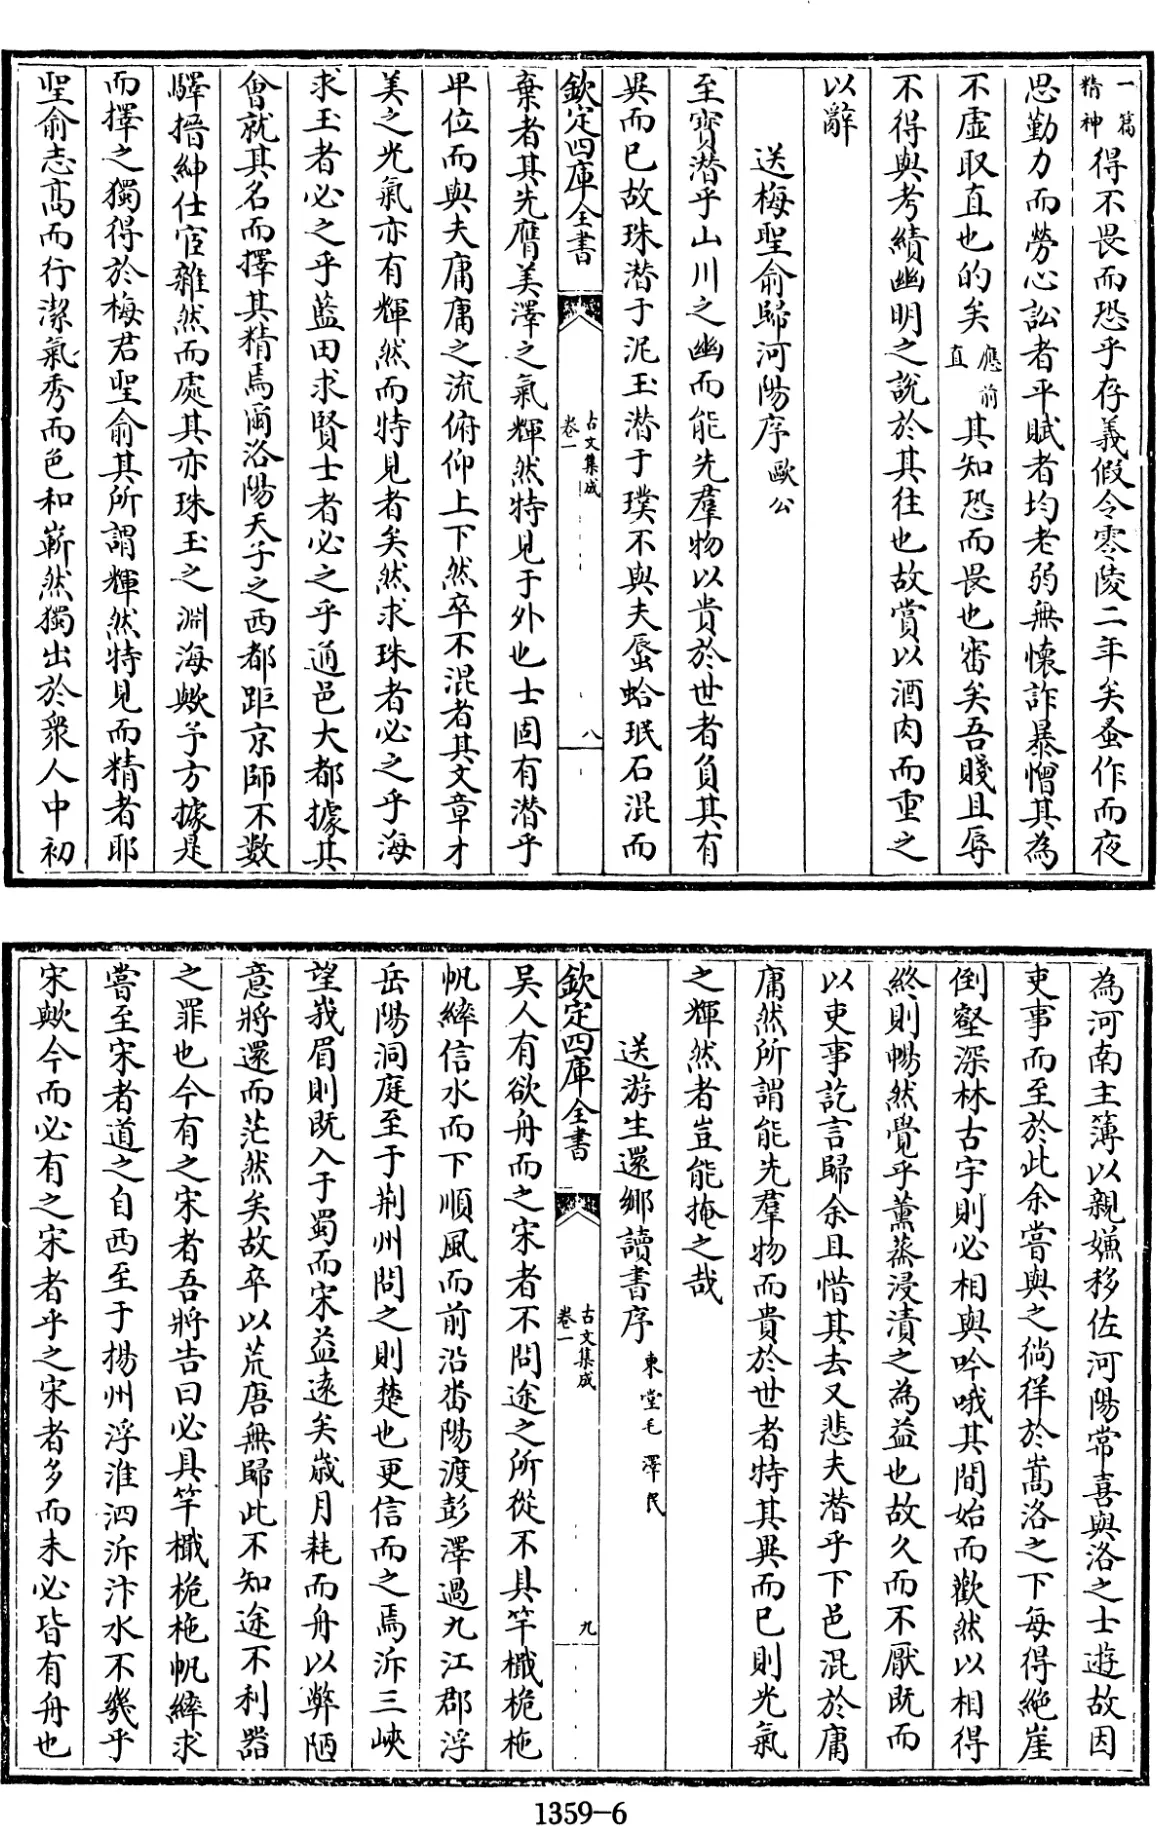 一篇精神得不畏而恐乎存義假令零陵二年矣蚤作而夜
思勤力而勞心訟者平賦者均老弱無懷詐暴憎其為
不虛取直也的矣應前直其知恐而畏也審矣吾賤且辱
不得與考績幽明之說於其往也故賞以酒肉而重之
以辭
送梅聖俞歸河陽序歐公
至寳潜乎山川之幽而能先羣物以貴於世者負其有
異而已故珠潜于泥玉潜于璞不與夫蜃蛤珉石混而
欽定四庫全書
古文集成
卷一
八
棄者其先膺美澤之氣輝然特見于外也士固有潜乎
卑位而與夫庸庸之流俯仰上下然卒不混者其文章才
美之光氣亦有輝然而特見者矣然求珠者必之乎海
求玉者必之乎藍田求賢士者必之乎通邑大都據其
會就其名而擇其精焉爾洛陽天子之西都距京師不数
驛搢紳仕宦雜然而處其亦珠玉之淵海歟予方據是
而擇之獨得於梅君聖俞其所謂輝然特見而精者耶
聖俞志高而行潔氣秀而色和嶄然獨出於衆人中初
為河南主薄以親嫌移佐河陽常喜與洛之士遊故因
吏事而至於此余嘗與之徜徉於嵩洛之下每得絶崖
倒壑深林古宇則必相與吟哦其間始而歡然以相得
終則暢然覺乎薰蒸浸漬之為益也故久而不厭既而
以吏事訖言歸余且惜其去又悲夫潜乎下邑混於庸
庸然所謂能先羣物而貴於世者特其異而已則光氣
之輝然者豈能掩之哉
送游生還鄉讀書序東堂毛澤民
欽定四庫全書
古文集成
卷一
九
吴人有欲舟而之宋者不問途之所從不具竿檝桅柂
帆繂信水而下順風而前沿畨陽渡彭澤過九江郡浮
岳陽洞庭至于荆州問之則楚也更信而之焉泝三峽
望峩眉則既入于蜀而宋益逺矣歳月耗而舟以弊陋
意將還而茫然矣故卒以荒唐無歸此不知途不利器
之罪也今有之宋者吾將告曰必具竿檝桅柂帆繂求
嘗至宋者道之自西至于揚州浮淮泗泝汴水不幾乎
宋歟今而必有之宋者乎之宋者多而未必皆有舟也
1359-6